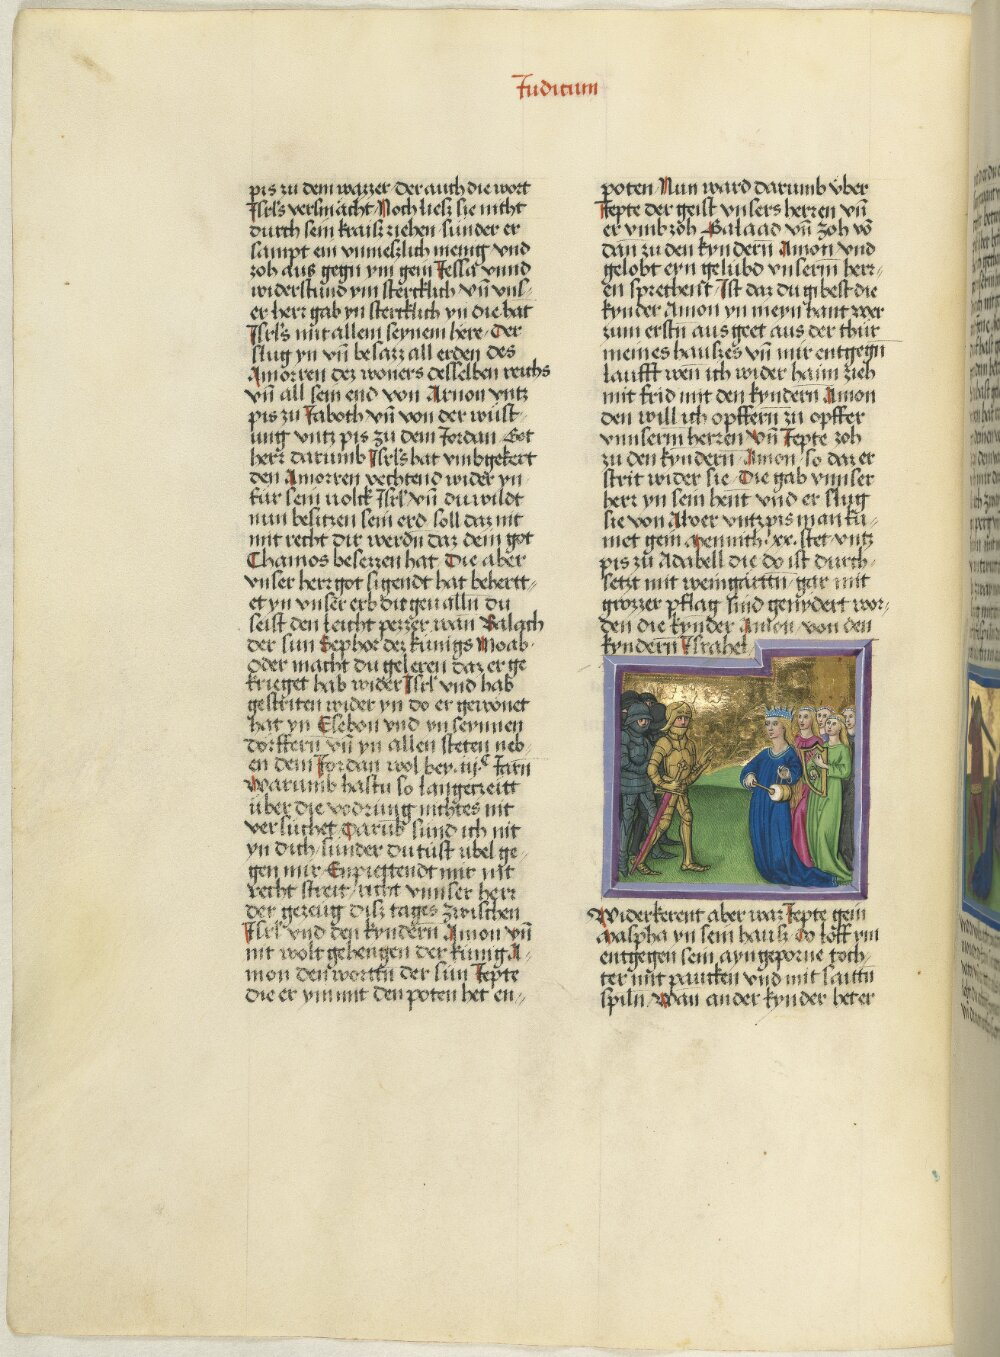 Judicum
pis zu dem wazzer der auch die wort
Isrl's versmächt Noch liesz sie nicht
durch sein kraisz ziehen sunder er
sampt ein vnmeszlich menig vnd
zoh aus gegn ym gein Jessa vnnd
widerstund ym stercklich vn̄ vns/
er herr gab yn stercklich yn die hat
Isrl's mit allem seynem here Der
slug yn vn̄ besazz all erden des
Amorren dez woners desselben reichs
vn̄ all sein end von Arnon vntz
pis zu Jaboth vn̄ von der wüst/
ung vntz pis zu dem Jordan Got
herr darumb Isrl's hat vmbgekert
den Amorren vechtend wider yn
für sein volck Isrl' vn̄ du wildt
nun besitzen sein erd soll daz nit
mit recht dir werdn̄ daz dein got
Chamos besezzen hat Die aber
vnser herr got sigendt hat behertt/
et yn vnser erb dit gen alln̄ du
seist den leicht pezzer wan Balach
der sun Sephor dez künigs Moab
oder macht du geleren daz er ge
krieget hab wider Isrl' vnd hab
gestriten wider yn do er gewonet
hat yn Esebon vnd yn seynnen
dorffern vn̄ yn allen steten neb/
en dem Jordan wol bey .iijc. Jarn
Warumb hastu so langezeitt
über die vodrung nichtes nit
versuchet Darūb sünd ich nit
yn dich sunder du tüst übel ge/
gen mir
recht streit richt vnnser herr
der gezeug disz tages zwischen
Isrl' vnd den kyndern Amon vn̄
nit wolt gehengen der künig A/
mon den wortn̄ der sun Jepte
die er ym mit den poten het en/
poten Nun ward darumb über
Jepte der geist vnsers herren vn̄
er vmbzoh Galaad vn̄ zoh vō
dan zu den kyndern Amon vnd
gelobt eyn gelübd vnserm herr/
en sprechent Ist daz du gibest die
kynder Amon yn meyn hant wer
zum erstn̄ aus geet aus der thür
meines hauszes vn̄ mir entgegn
laufft wen̄ ich wider haim zieh
mit frid mit den kyndern Amon
den will ich opffern zu opffer
vnnserm herren Vn̄ Jepte zoh
zu den kyndern Amon so daz er
strit wider sie Die gab vnnser
herr yn sein hent vnd er slug
sie von Aroer vntz pis man kü/
met gein Mennith .xx. stet vntz
pis zu Adabell die do ist durch/
setzt mit weingärttn̄ gar mit
grozzer pflag sind genydert wor/
den die kynder Amon von den
kyndern Israhel
Widerkerent aber waz Jepte gein
Maspha yn sein hausz Do loff ym
entgegen sein ayngeporne toch/
ter mit paucken vnd mit sanctn̄
spiln̄ Wan ander kynder het er